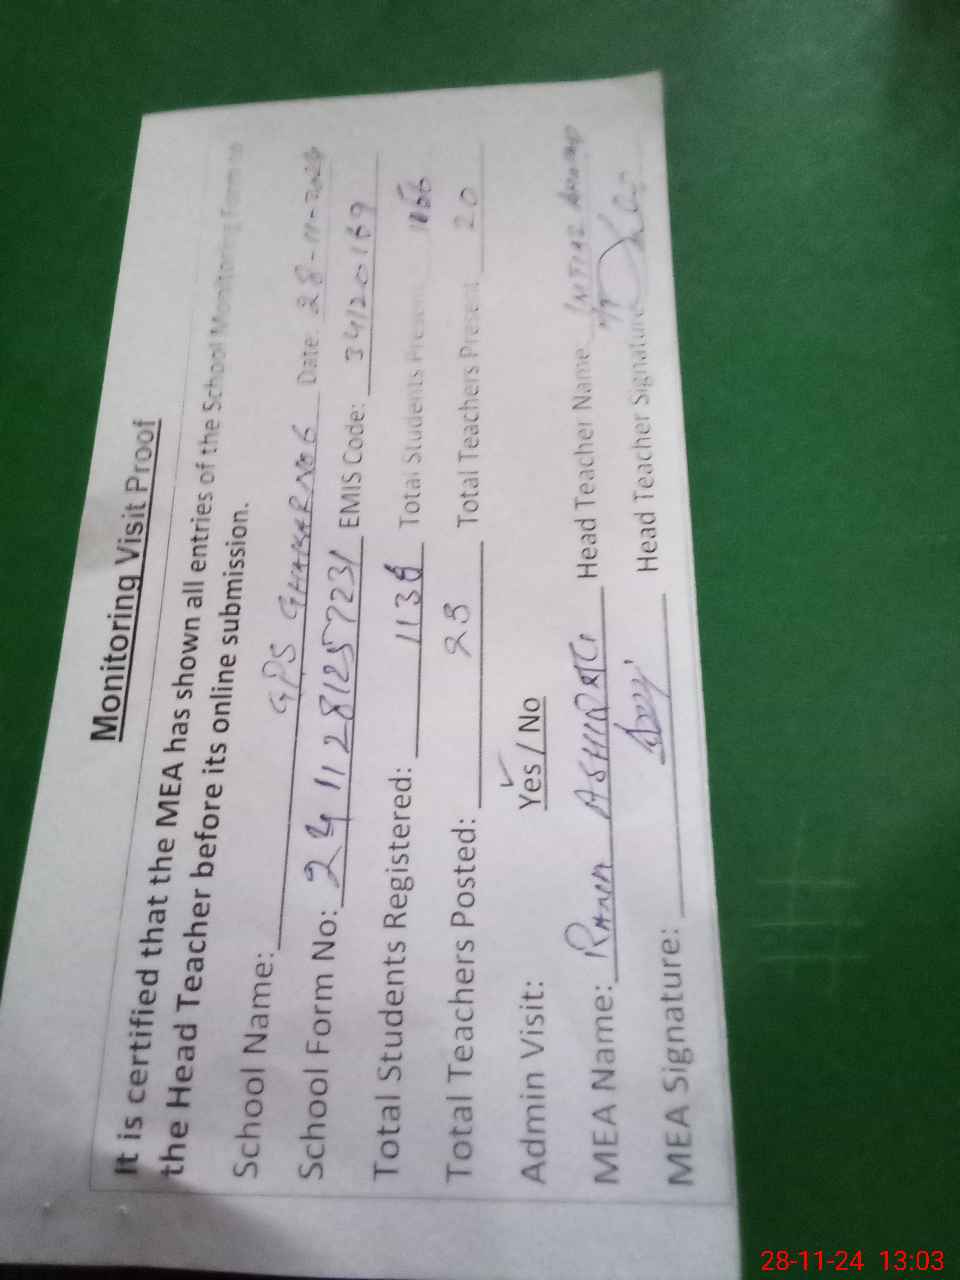 Monitoring Visit Proof
It is certified that the MEA has shown all entries of the School Monitoring Form to
the Head Teacher before its online submission.
School Name: GPS GHAKAR NO 6 Date: 28-11-2024
School Form No: 2411281257231 EMIS Code: 34120169
Total Students Registered: 1138 Total Students Present
Total Teachers Posted: 28 Total Teachers Present 20
Admin Visit: Yes / No
MEA Name: RANA Head Teacher Name: IMTIAZ AHMAD
MEA Signature: Head Teacher Signature
28-11-24 13:03